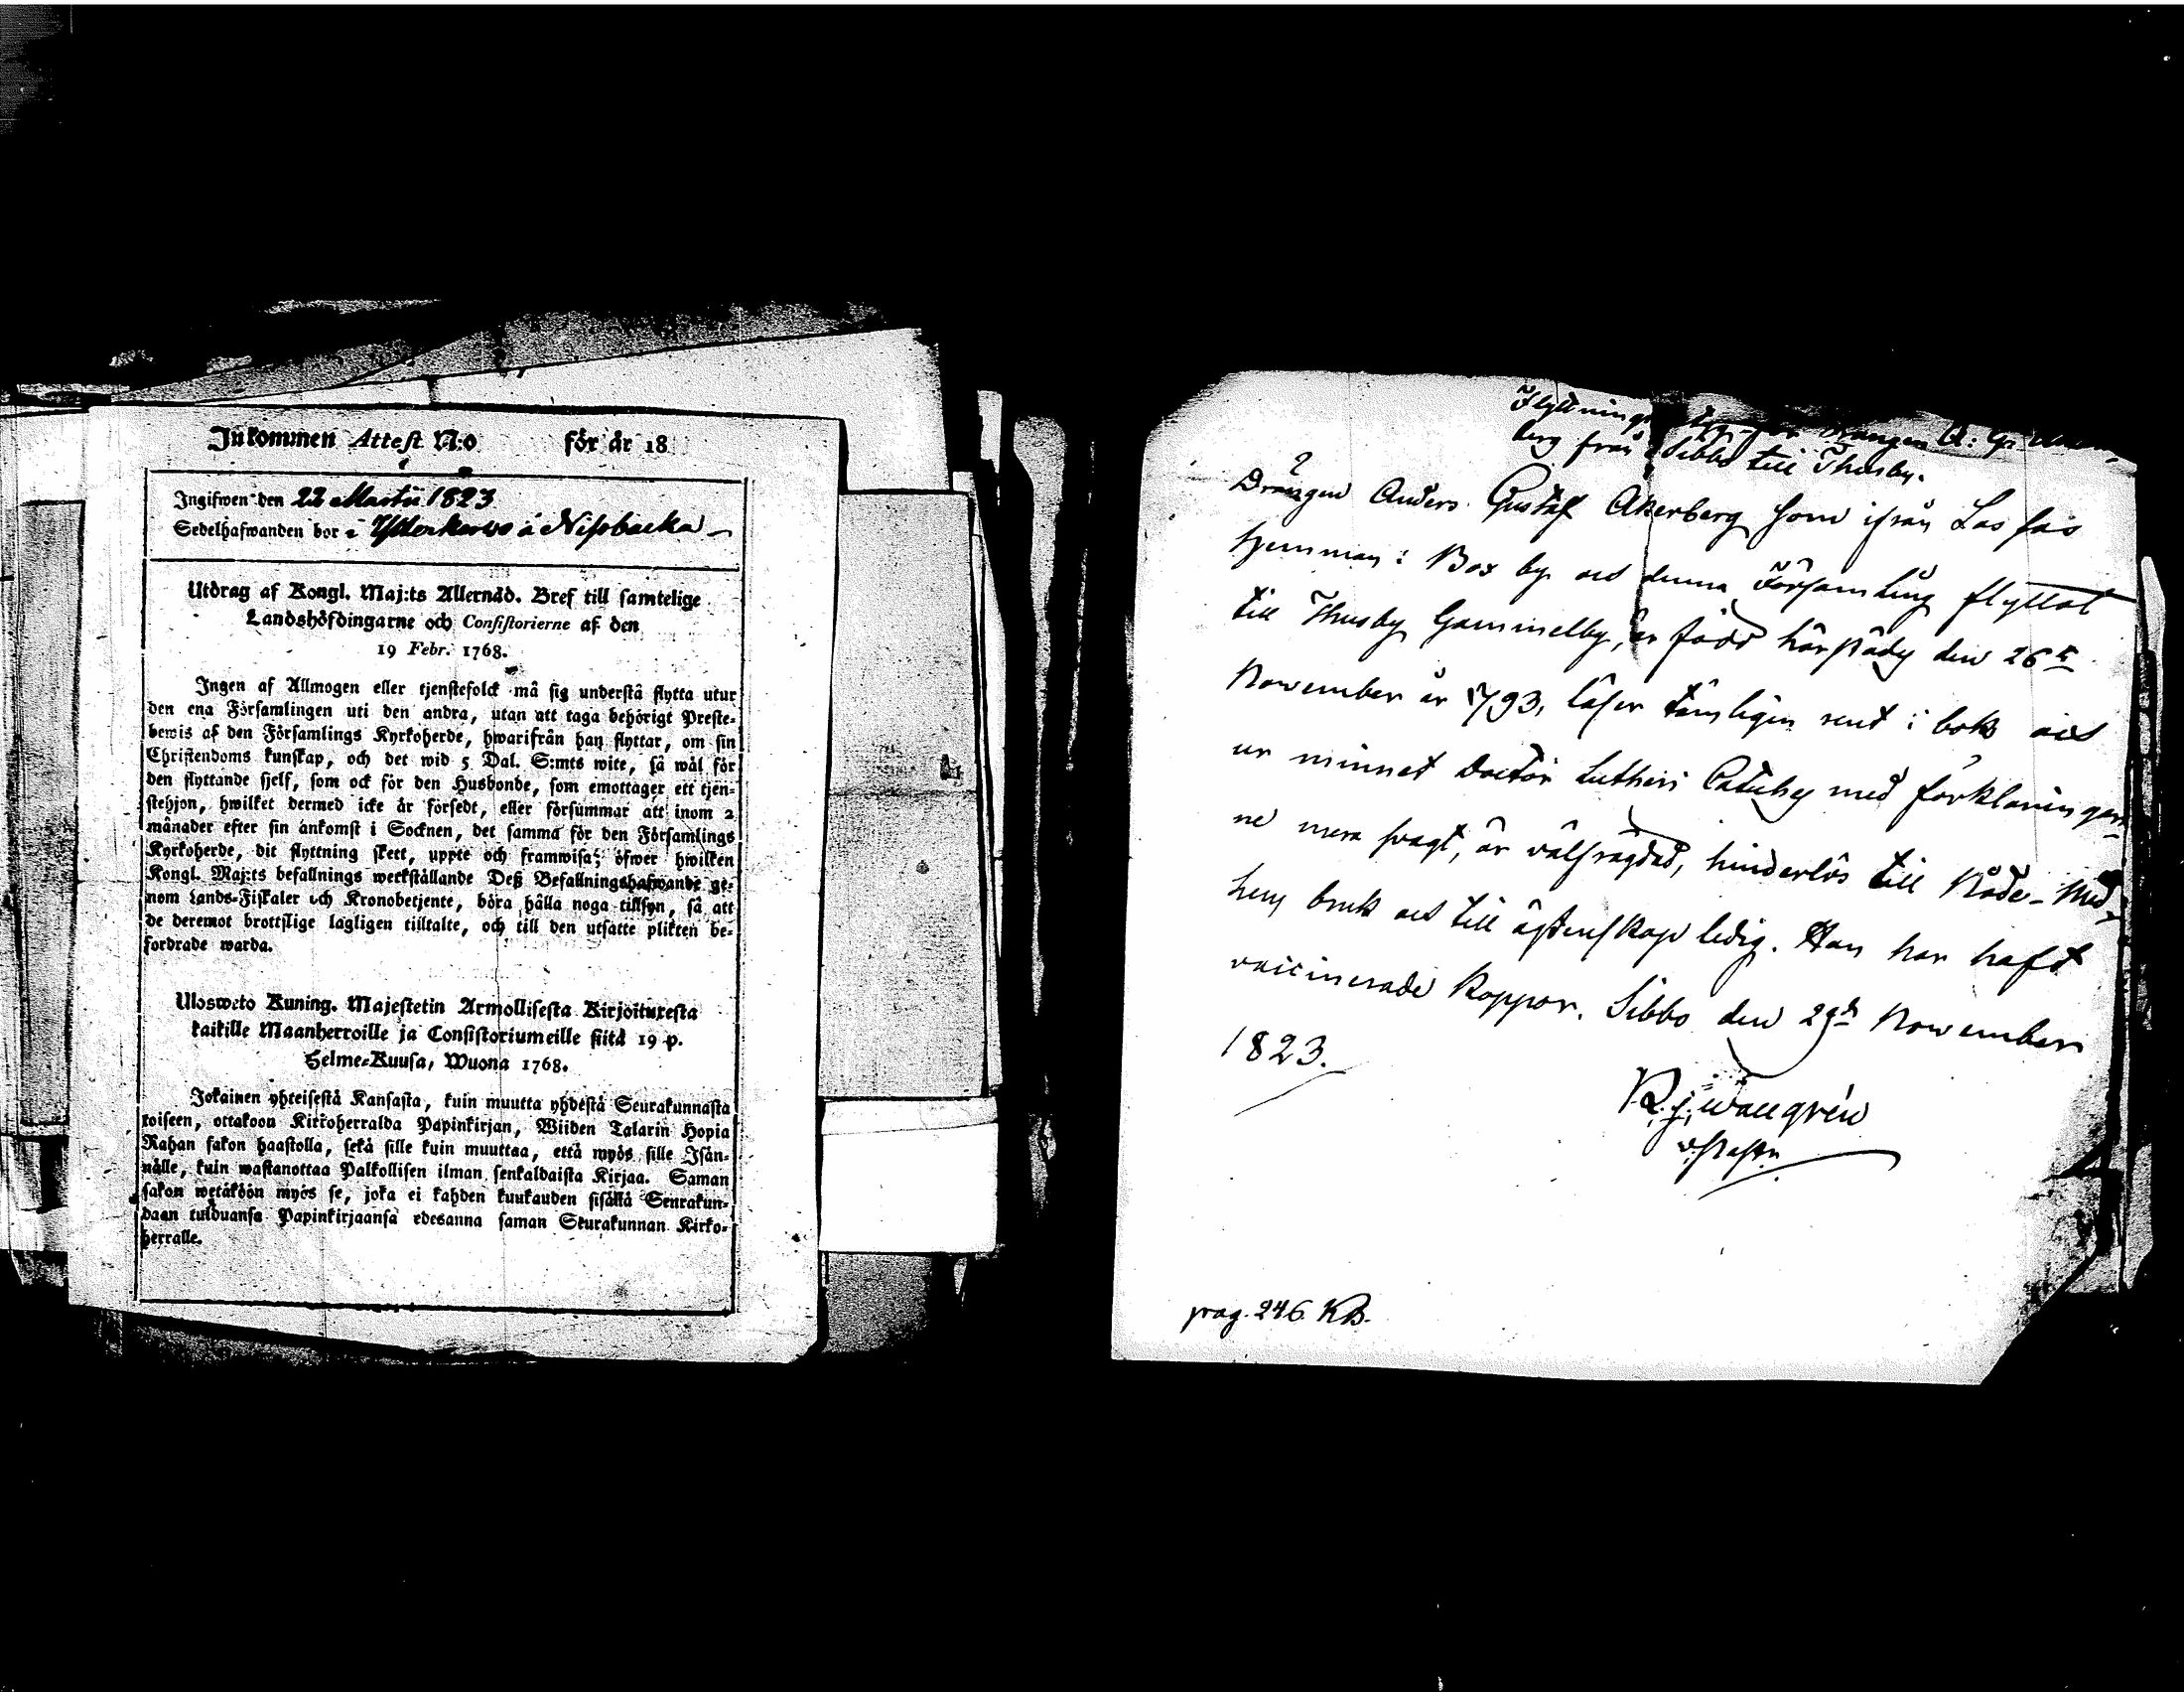 Inkommen Attest N:o för år 18
Ingifwen den 22 Martii 1823
Sedelhafwanden bor i Ysterkerss å Nissbacka
Utdrag af Kongl. Maj:ts Allernåd. Bref till samtelige
Landshöfdingarne och Consistorierne af den
19 Febr. 1768.
Ingen af Allmogen eller tjenstefolck må sig understå flytta utur
den ena Församlingen uti den andra, utan att taga behörigt Preste-
bewis af den Församlings Kyrkoherde, hwarifrån han flyttar, om sin
Christendoms kunskap, och det wid 5 Dal. S:mts wite, så wäl för
den flyttande sjelf, som ock för den Husbonde, som emottager ett tjen-
stehjon, hwilket dermed icke är försedt, eller försummar att inom 2
månader efter sin ankomst i Socknen, det samma för den Församlings
Kyrkoherde, dit flyttning skett, uppte och framwisa; öfwer hwilken
Kongl. Maj:ts befallnings werkställande Deß Befallningshafwande ge-
nom Lands-Fiskaler och Kronobetjente, böra hålla noga tillsyn, så att
de deremot brottslige lagligen tilltalte, och till den utsatte plikten be-
fordrade warda.
Ulosweto Kuning. Majestetin Armollisesta Kirjoituxesta
kaikille Maanherroille ja Consistoriumeille siitä 19 p.
Helme-Kuusa, Wuona 1768.
Jokainen yhteisestä Kansasta, kuin muutta yhdestä Seurakunnasta
toiseen, ottakoon Kirkoherralda Papinkirjan, Wiiden Talarin Hopia
Rahan sakon haastolla, sekä sille kuin muuttaa, että myös sille Isän-
nälle, kuin wastanottaa Palkollisen ilman senkaldaista Kirjaa. Saman
sakon wetäköön myös se, joka ei kahden kuukauden sisällä Seurakun-
daan tulduansa Papinkirjaansa edesanna saman Seurakunnan Kirko-
herralle.
Flyttnings Drängen A: G:
berg från Sibbo till Thusby.
Drängen Anders Gustaf Åkerberg som ifrån Las fas
hemman i Box by och denna Församling flyttat
till Thusby Gammelby, är född härstädes den 26te
November år 1793, läser tämligen rent i bok och
ur minnet Doctor Lutheri Cateches med förklaringar-
ne mera svagt, är välfrägdad, hinderlös till Nåde-Med-
lens bruk och till äktenskap ledig. Han har haft
vaccinerade Koppor. Sibbo den 29de November
1823.
R. J. Wallgrén
pag. 246 KB.